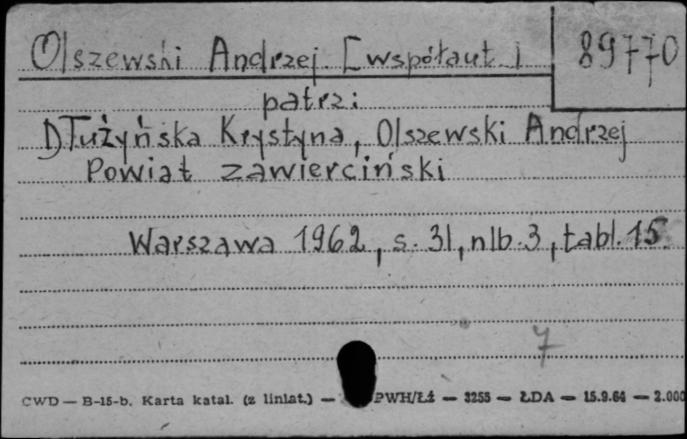 Olszewski Andrzej. [współaut.] 89770
patrz:
Dłużyńska Krystyna, Olszewski Andrzej
Powiat zawierciński
Warszawa 1962, s. 31, nlb. 3, tabl. 15.
7
CWD — B-15-b. Karta katal. (z liniat.) — PWH/Łź — 3255 — ŁDA — 15.9.64 — 2.000